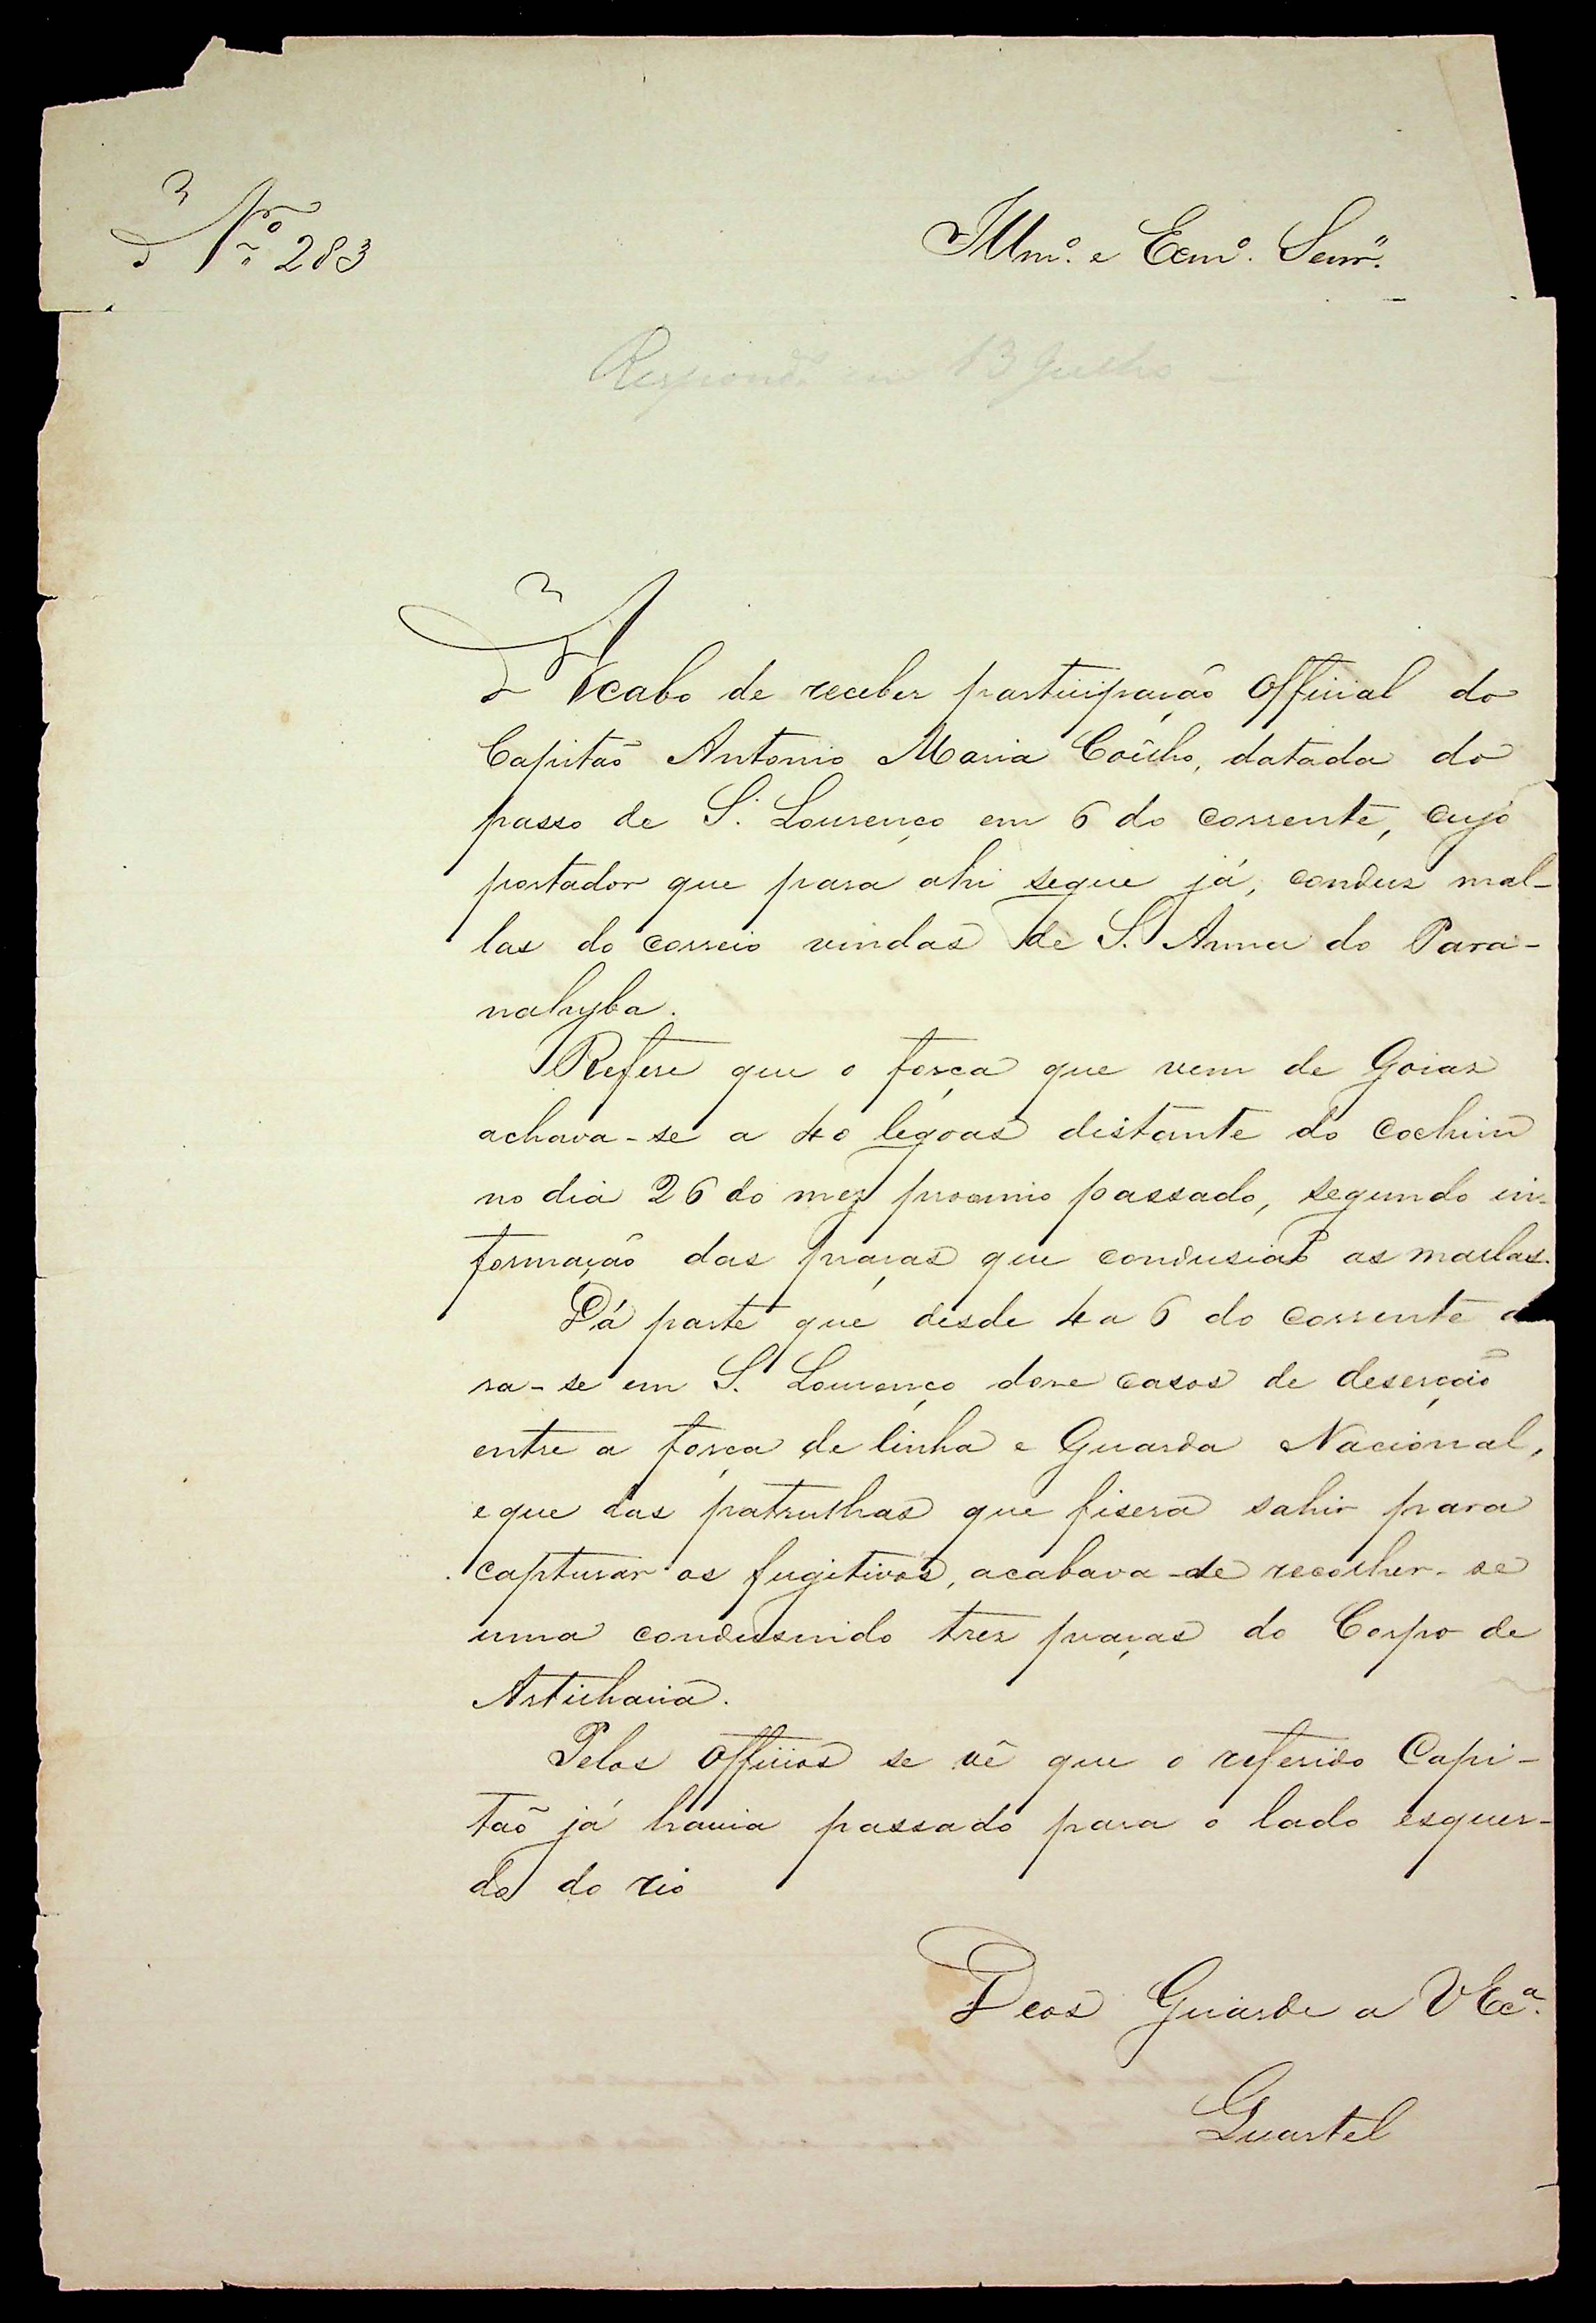 Nº 283
Illmº. e Exmº. Senr.
Respondº em 13 Julho
Acabo de receber participação official do
Capitaõ Antonio Maria Coêlho, datada do
passo de S. Lourenço em 6 do corrente, cujo
portador que para ahi segue já, conduz mal-
las do correio vindas de S. Anna do Para-
nahyba.
Refere que a força que vem de Goiaz
achava-se a 40 legoas distante do Cochim
no dia 26 do mez proximo passado, segundo in-
formação das praças que condusiaõ as mallas.
Dá parte que desde 4 a 6 do corrente
ra-se em S. Lourenço doze casos de deserção
entre a força de linha e Guarda Nacional,
e que das patrulhas que fisera sahir para
capturar os fugitivos, acabava de recolher-se
uma condusindo trez praças do Corpo de
Artilharia.
Pelos officios se vê que o referido Capi-
taõ já havia passado para o lado esquer-
do do rio
Deos Guarde a V Exª.
Quartel